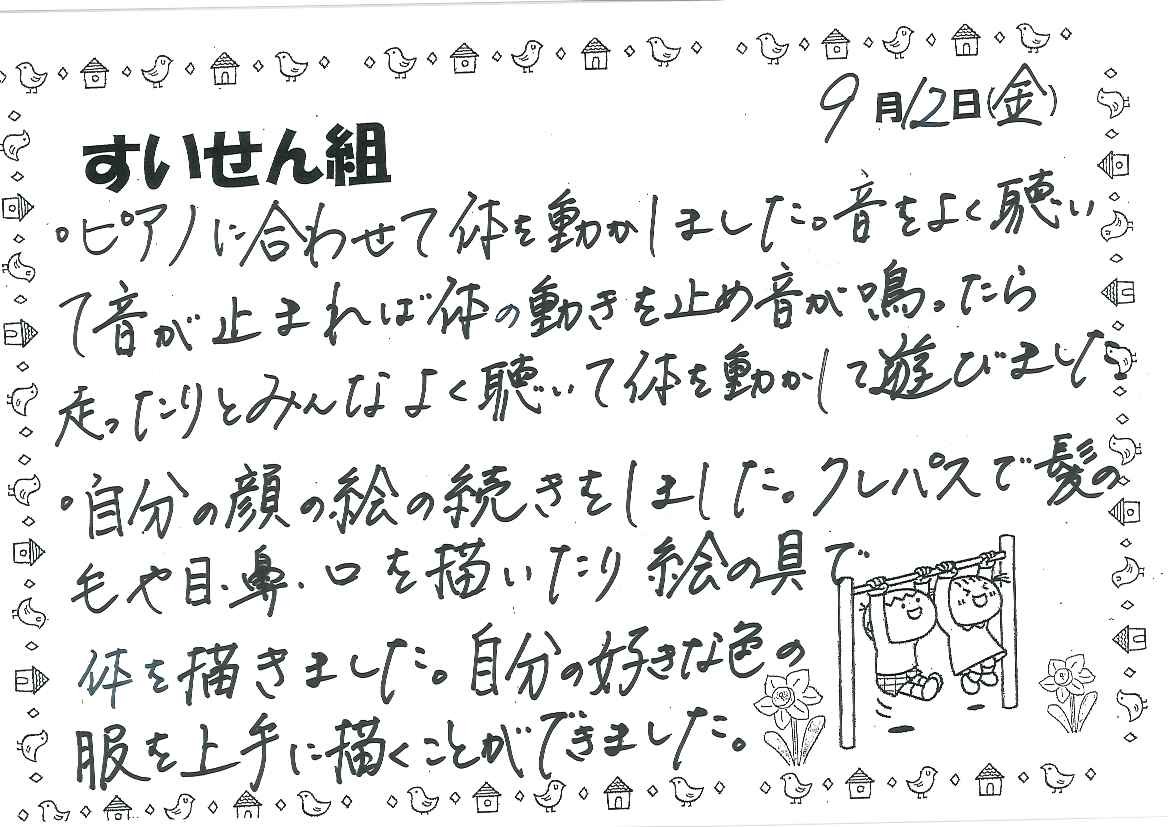 9月12日(金)
すいせん組
。ピアノに合わせて体を動かしました。音をよく聴い
て音が止まれば体の動きを止め音が鳴ったら
走ったりとみんなよく聴いて体を動かして遊びました
。自分の顔の絵の続きをしました。クレパスで髪の
毛や目・鼻・口を描いたり絵の具で
体を描きました。自分の好きな色の
服を上手に描くことができました。